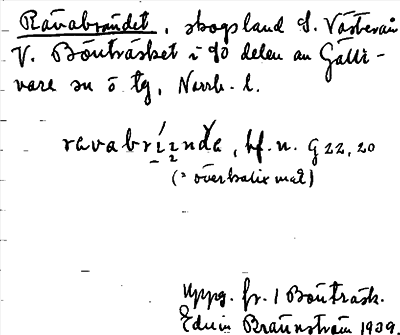 Råvabrändet, skogsland S. Västerån
V. Bönträsket i sö delen av Gälli-
vare sn o tg, Norrb. l.
ravabrinnda, bf. n. G 22, 20
(= överkalix mål)
Uppg. fr. 1 Bönträsk.
Edvin Brännström 1939.